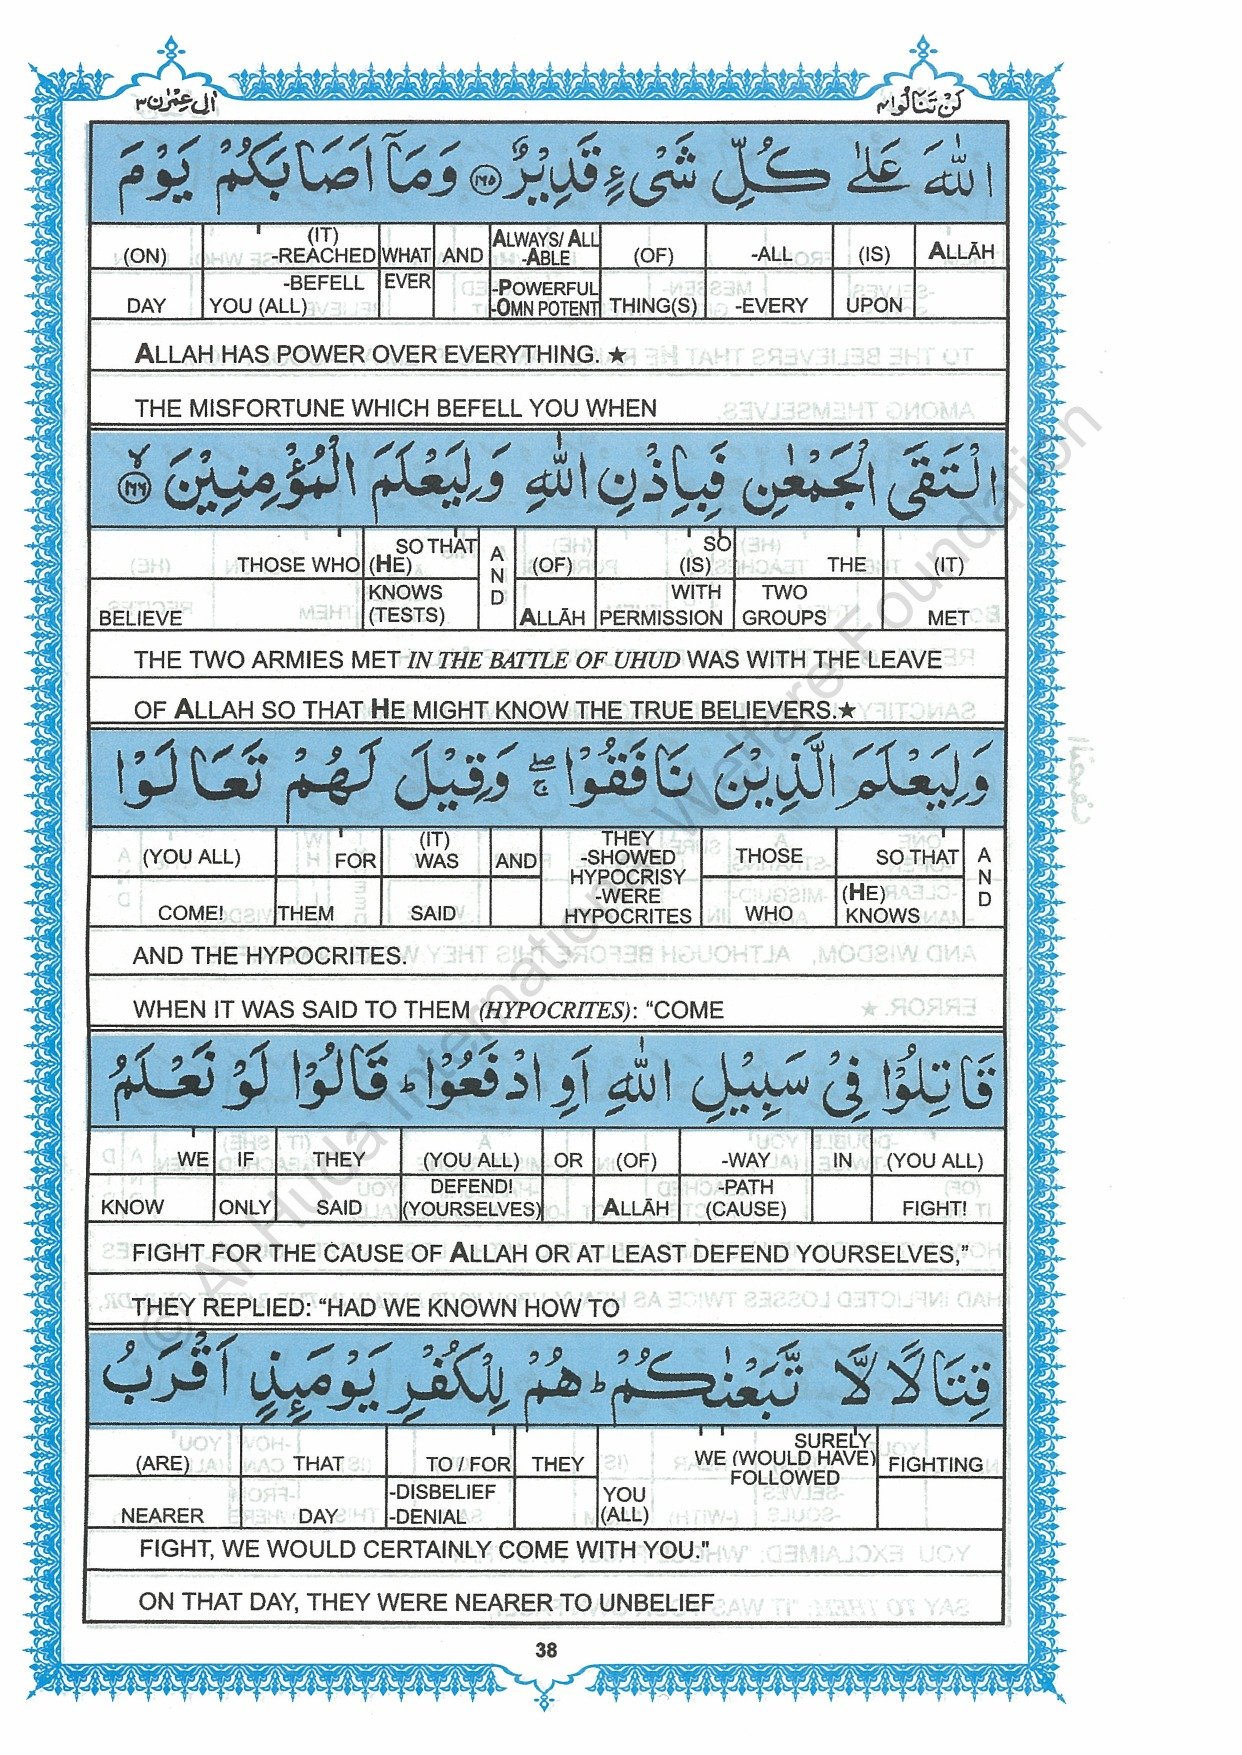 اٰلِ عِمْرٰن ٣
لَنْ تَنَالُوا ٤
اللّٰهَ عَلٰى كُلِّ شَىْءٍ قَدِيْرٌ ١٦٥ وَمَآ اَصَابَكُمْ يَوْمَ
(ON) (IT) -REACHED WHAT AND ALWAYS/ ALL -ABLE (OF) -ALL (IS) ALLĀH
DAY -BEFELL YOU (ALL) EVER -POWERFUL -OMN POTENT THING(S) -EVERY UPON
ALLAH HAS POWER OVER EVERYTHING. ★
THE MISFORTUNE WHICH BEFELL YOU WHEN
الْتَقَى الْجَمْعٰنِ فَبِاِذْنِ اللّٰهِ وَلِيَعْلَمَ الْمُؤْمِنِيْنَ ١٦٦ لا
THOSE WHO SO THAT (HE) AND (OF) SO (IS) THE (IT)
BELIEVE KNOWS (TESTS) ALLĀH WITH PERMISSION TWO GROUPS MET
THE TWO ARMIES MET IN THE BATTLE OF UHUD WAS WITH THE LEAVE
OF ALLAH SO THAT HE MIGHT KNOW THE TRUE BELIEVERS.★
وَلِيَعْلَمَ الَّذِيْنَ نَافَقُوْا ۖۚ وَقِيْلَ لَهُمْ تَعَالَوْا
(YOU ALL) FOR (IT) WAS AND THEY -SHOWED HYPOCRISY -WERE HYPOCRITES THOSE SO THAT AND
COME! THEM SAID WHO (HE) KNOWS
AND THE HYPOCRITES.
WHEN IT WAS SAID TO THEM (HYPOCRITES): “COME
قَاتِلُوْا فِىْ سَبِيْلِ اللّٰهِ اَوِ ادْفَعُوْا ؕ قَالُوْا لَوْ نَعْلَمُ
WE IF THEY (YOU ALL) OR (OF) -WAY IN (YOU ALL)
KNOW ONLY SAID DEFEND! (YOURSELVES) ALLĀH -PATH (CAUSE) FIGHT!
FIGHT FOR THE CAUSE OF ALLAH OR AT LEAST DEFEND YOURSELVES,”
THEY REPLIED: “HAD WE KNOWN HOW TO
قِتَالًا لَّا تَّبَعْنٰكُمْ ؕ هُمْ لِلْكُفْرِ يَوْمَئِذٍ اَقْرَبُ
(ARE) THAT TO / FOR THEY SURELY WE (WOULD HAVE) FOLLOWED FIGHTING
NEARER DAY -DISBELIEF -DENIAL YOU (ALL)
FIGHT, WE WOULD CERTAINLY COME WITH YOU."
ON THAT DAY, THEY WERE NEARER TO UNBELIEF
38
© Al Huda International Welfare Foundation